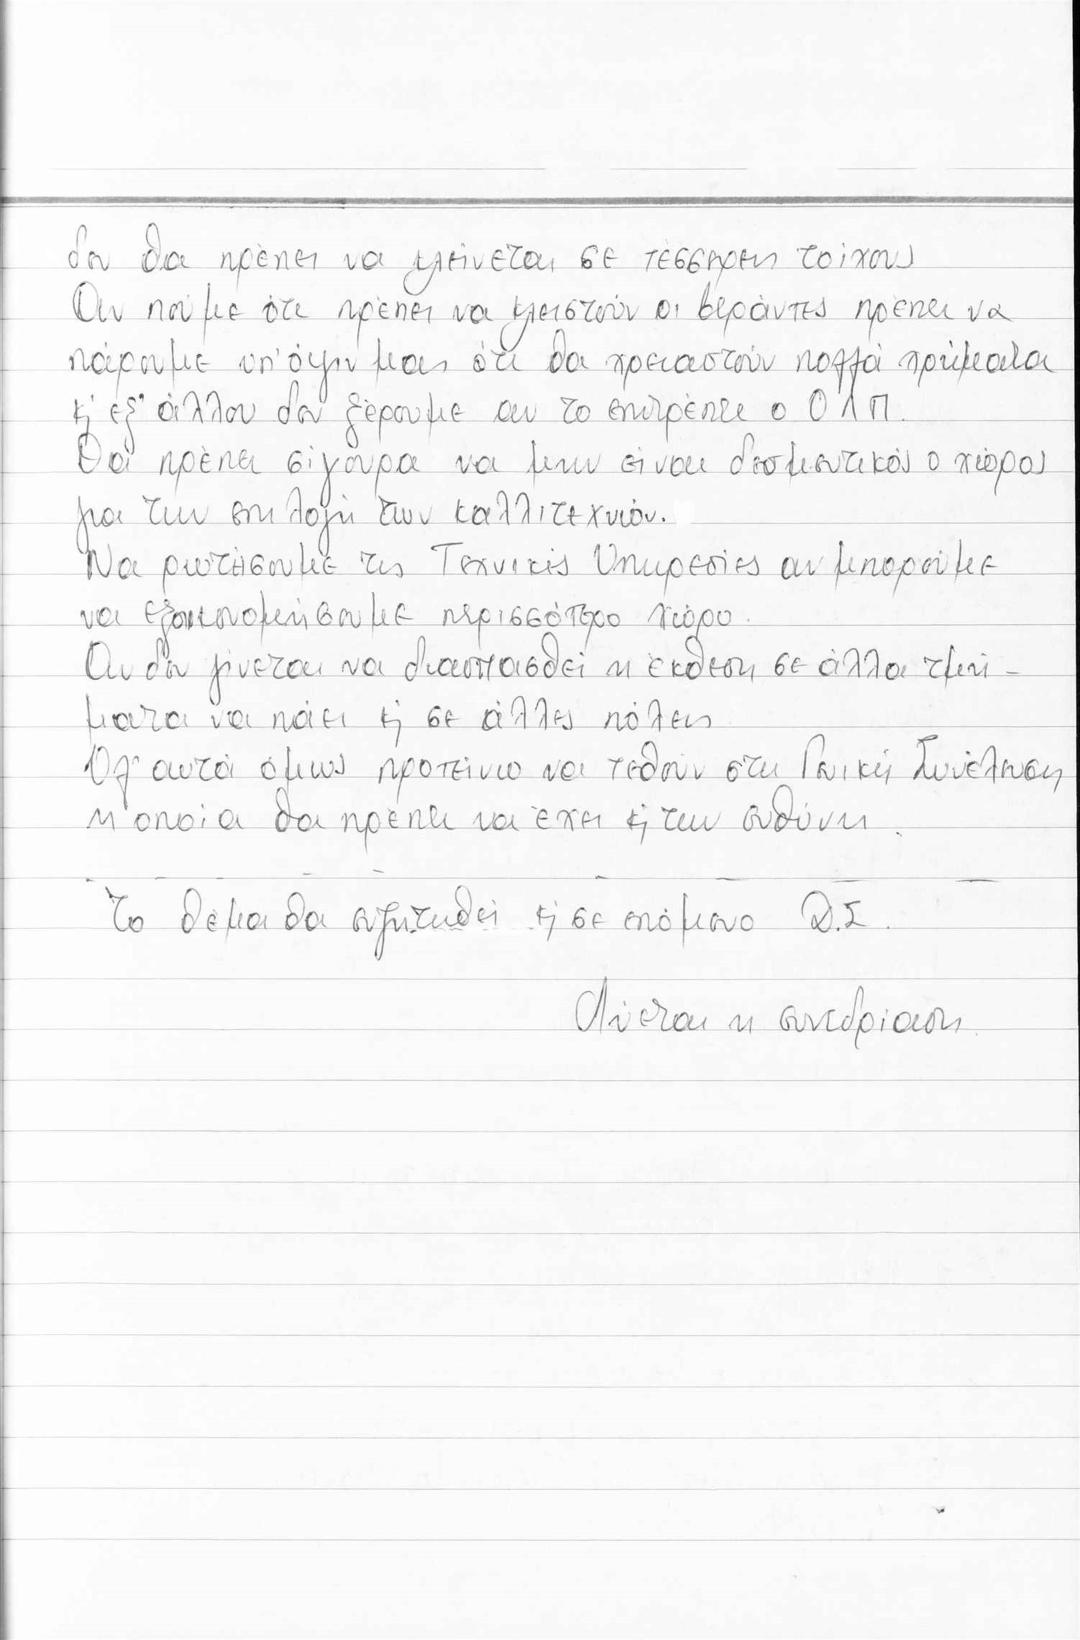 δεν θα πρέπει να κλείνεται σε τέσσερεις τοίχους
Αν πούμε ότι πρέπει να κλειστούν οι βεράντες πρέπει να
πάρουμε υπ' όψιν μας ότι θα χρειαστούν πολλά χρήματα
κι εξ' άλλου δεν ξέρουμε αν το επιτρέπει ο ΟΛΠ.
Θα πρέπει σίγουρα να μην είναι δεσμευτικός ο χώρος
για την επιλογή των καλλιτεχνών.
Να ρωτήσουμε τις Τεχνικές Υπηρεσίες αν μπορούμε
να εξοικονομήσουμε περισσότερο χώρο.
Αν δεν γίνεται να διασπασθεί η έκθεση σε άλλα τμή-
ματα να πάει κι σε άλλες πόλεις
Όλ' αυτά όμως προτείνω να τεθούν στη Γενική Συνέλευση
η οποία θα πρέπει να έχει κι την ευθύνη.
Το θέμα θα συζητηθεί κι σε επόμενο Δ.Σ.
Λύεται η συνεδρίαση.